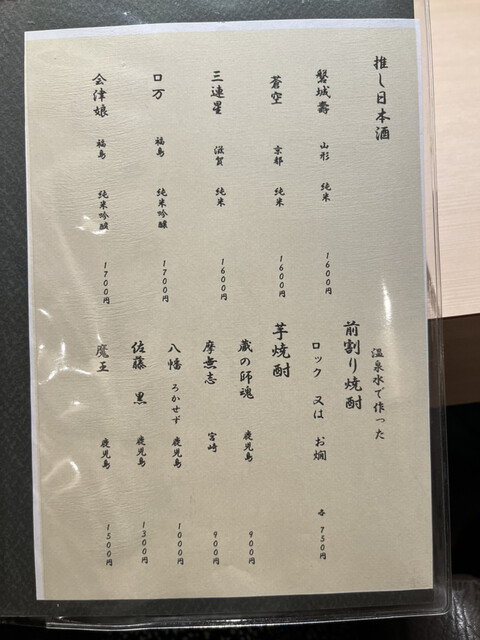 推し日本酒
磐城壽 山形 純米 1600円
蒼空 京都 純米 1600円
三連星 滋賀 純米 1600円
ロ万 福島 純米吟醸 1700円
会津娘 福島 純米吟醸 1700円
温泉水で作った
前割り焼酎
ロック 又は お燗 各 750円
芋焼酎
蔵の師魂 鹿児島 900円
摩無志 宮崎 900円
八幡 ろかせず 鹿児島 1000円
佐藤 黒 鹿児島 1300円
魔王 鹿児島 1500円